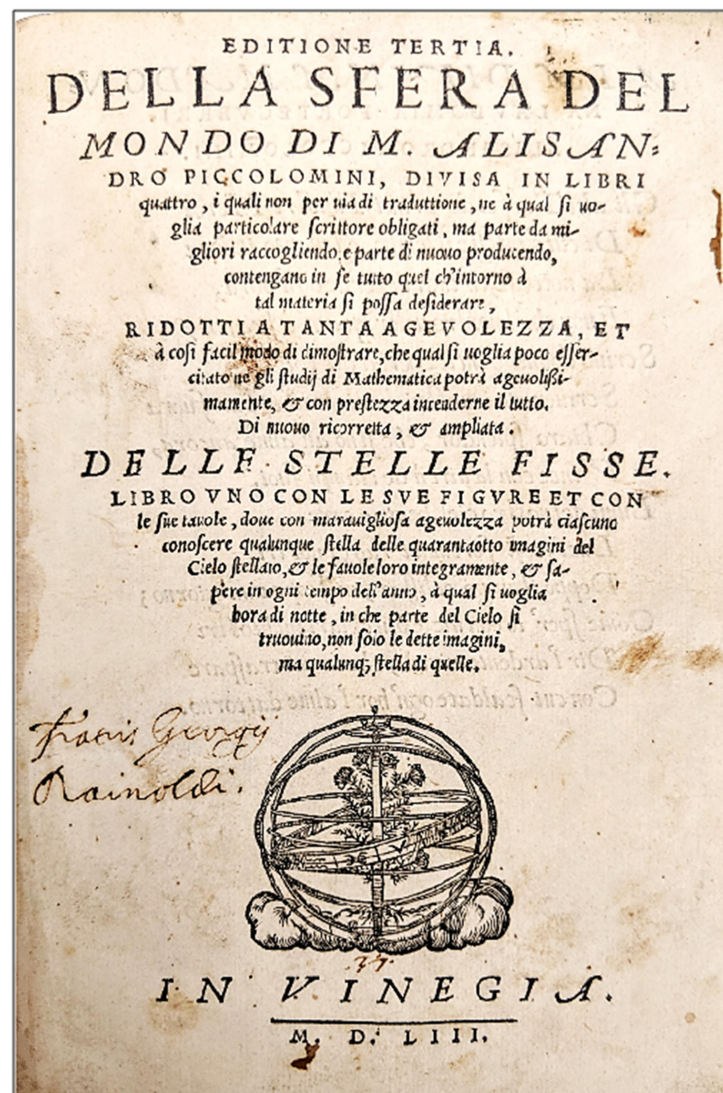 EDITIONE TERTIA.
DELLA SFERA DEL
MONDO DI M. ALISAN-
DRO PICCOLOMINI, DIVISA IN LIBRI
quattro, i quali non per uia di traduttione, ne à qual si uo-
glia particolare scrittore obligati, ma parte da mi-
gliori raccogliendo, e parte di nuouo producendo,
contengano in se tutto quel ch'intorno à
tal materia si possa desiderare,
RIDOTTI A TANTA AGEVOLEZZA, ET
à cosi facil modo di dimostrare, che qual si uoglia poco esser-
citato ne gli studij di Mathematica potrà ageuolissi-
mamente, & con prestezza intenderne il tutto.
Di nuouo ricorretta, & ampliata.
DELLE STELLE FISSE.
LIBRO VNO CON LE SVE FIGVRE ET CON
le sue tauole, doue con marauigliosa ageuolezza potrà ciascuno
conoscere qualunque stella delle quarantaotto imagini del
Cielo stellato, & le fauole loro integramente, & sa-
pere in ogni tempo dell'anno, à qual si uoglia
hora di notte, in che parte del Cielo si
truouino, non solo le dette imagini,
ma qualunq; stella di quelle.
Georgij
Rainoldi.
37.
IN VINEGIA.
M. D. LIII.